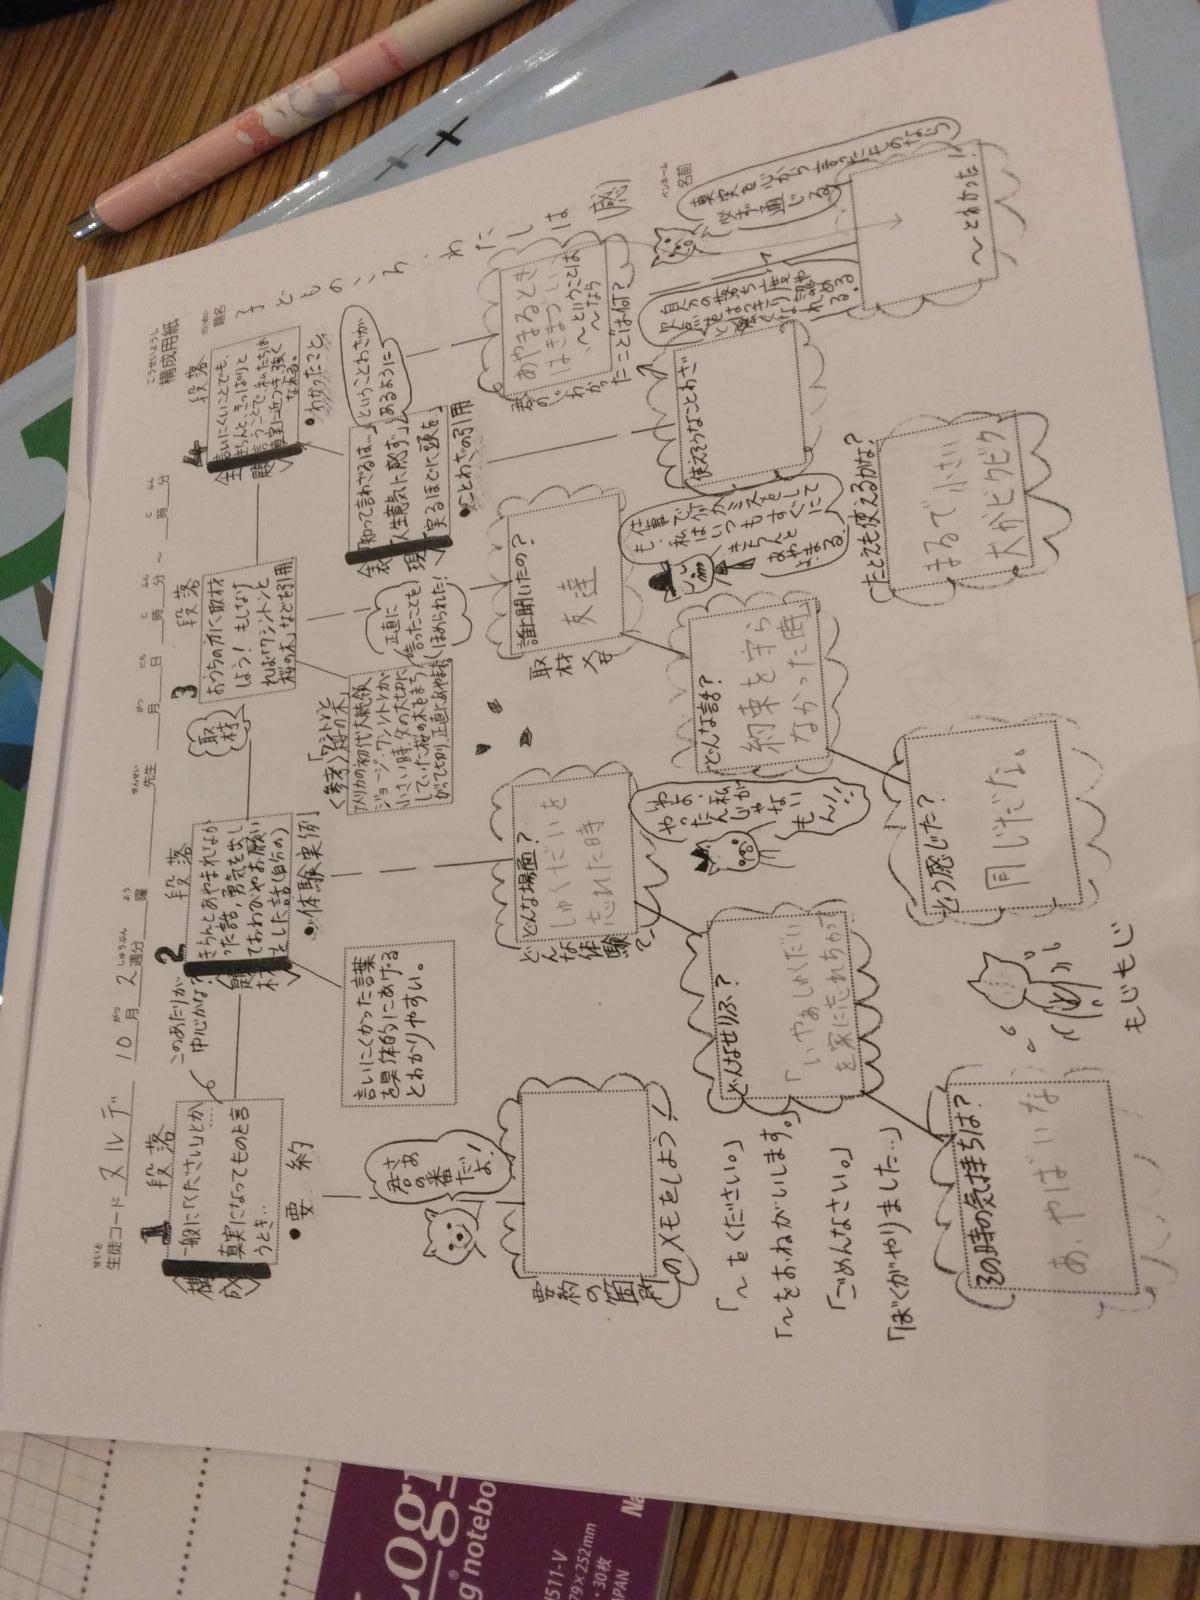 構成用紙
こうせいようし
題名
子どものころ、わたしは
感
ペンネーム
名前
生徒コード ヌルデ
せいと
10月2週分
がつ しゅうぶん
曜
よう
先生
せんせい
月 日 時 分 ~ 時 分
1
段落
構成
一般に「ください」とか
真実になってものを言
うとき‥
●要約
このあたりが
中心かな?
2
段落
題材
きちんとあやまれなか
った話、勇気を出し
ておわびやお願い
をした話(自分の)
●体験実例
言いにくかった言葉
を具体的にあげる
とわかりやすい。
取材
3
段落
おうちの方に取材
しよう! もしなけ
れば「ワシントンと
桜の木」などを引用
<参考>「ワシントンと
桜の木」
アメリカの初代大統領
ジョージ・ワシントンが
小さい時、父の大切に
していた桜の木をまち
がって切り、正直にあやまった
正直に
言ったことを
ほめられた!
4
段落
主題
言いにくいことでも、
きちんと、きっぱりと
言うことで、私たちは
真実に近づき、強く
なれる。
●わかったこと
表現
「知って言わざるは…」
「人生意気に感ず」
「実るほどに頭を」
ということわざが
あるように
●ことわざの引用
君の番
さあ
だよ!
要約の箇所のメモをしよう!
「~をください。」
「~をおねがいします。」
「ごめんなさい。」
「ぼくがやりました…」
どんな体験?
どんな場面?
しゅくだいを
忘れた時
どんなせりふ?
「いやぁしゅくだい
を家に忘れちゃって
その時の気持ちは?
あ、やばいな
もじもじ
やったよ、
私じゃないもん!!
取材メモ
誰に聞いたの?
友達
どんな話?
約束を守ら
なかった時
どう感じた?
同じだな。
も私は
仕事で
いつか
ミスを
きちんと
すぐに
あやまる。
たとえも使えるかな?
まるで小さい
犬がビクビク
君のわかったことは何?
あやまるとき
はきまづい
~ということは
~なら
使えそうなことわざ
欠点
真実を心から言ったものなら
必ず通じる
~とわかった!
notebo
511-V
79×252mm
・30枚
JAPAN